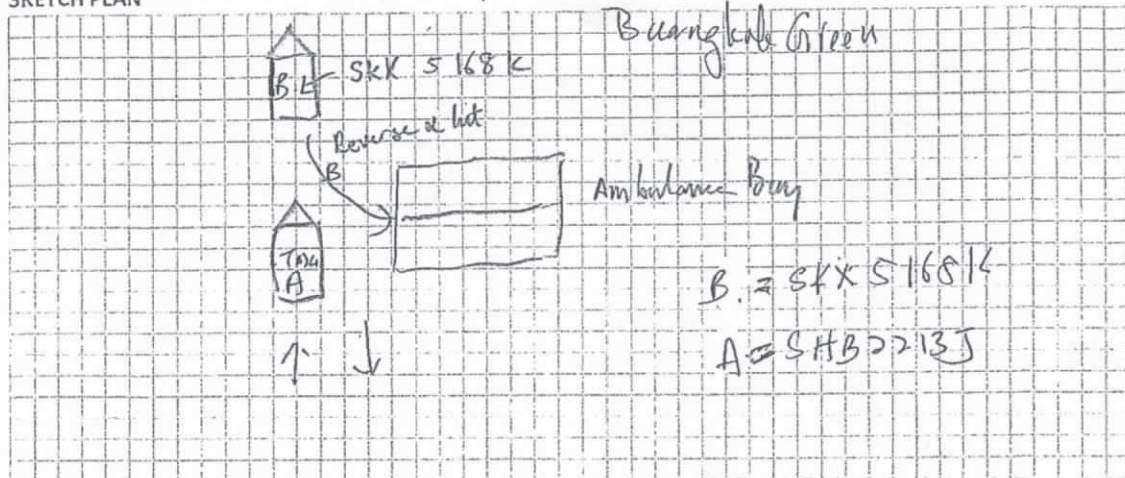 SKETCH PLAN
Buangkok Green
B
SKX 5168K
Reverse & hit
B
Ambulance Bay
A
B = SKX 5168K
A = SHB2213J